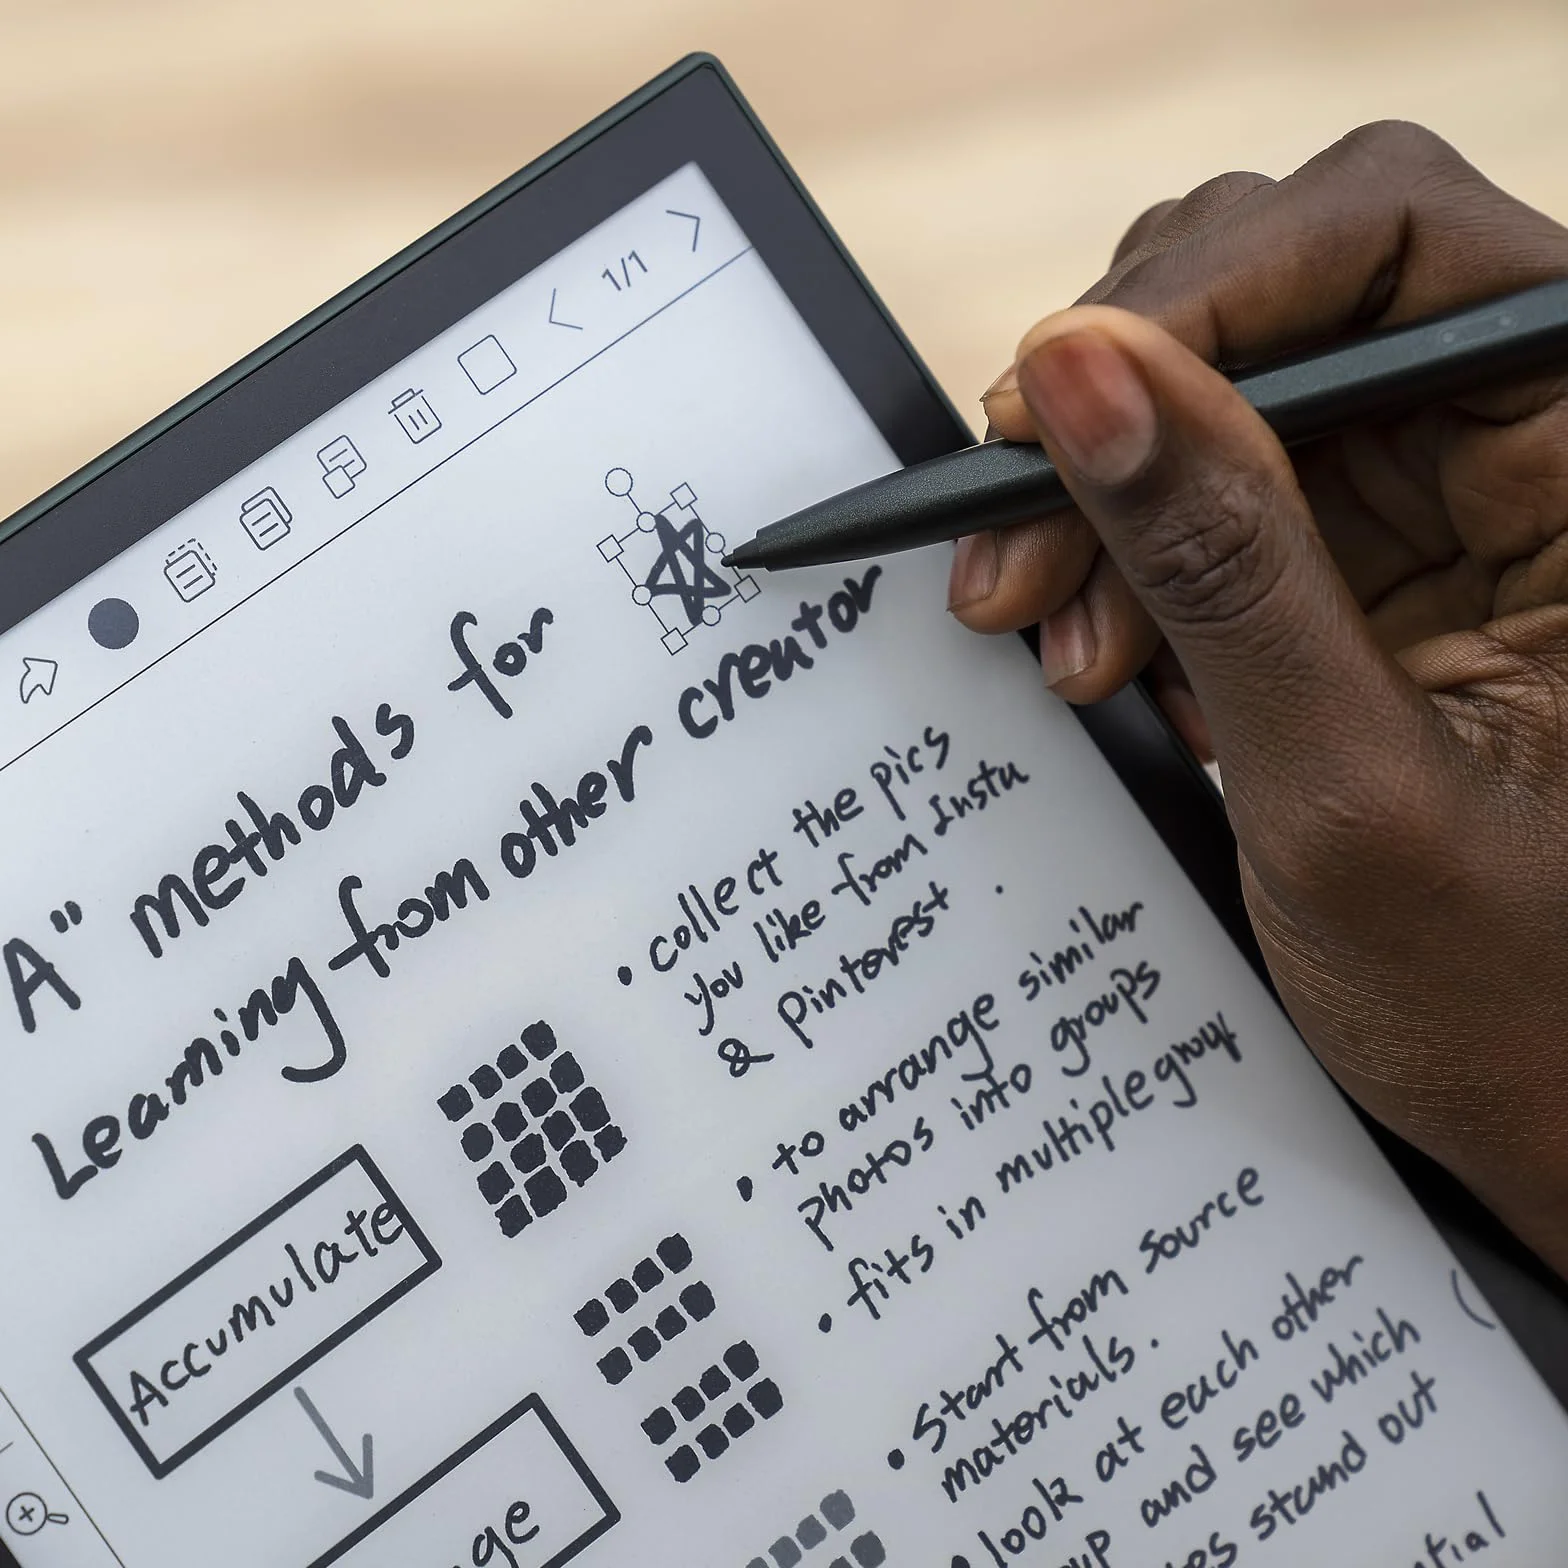 1/1
A" methods for
Learning from other creator
Accumulate
• collect the pics
you like from Insta
& Pinterest .
• to arrange similar
photos into groups
• fits in multiple group
• Start from source
materials.
• look at each other
and see which
stand out